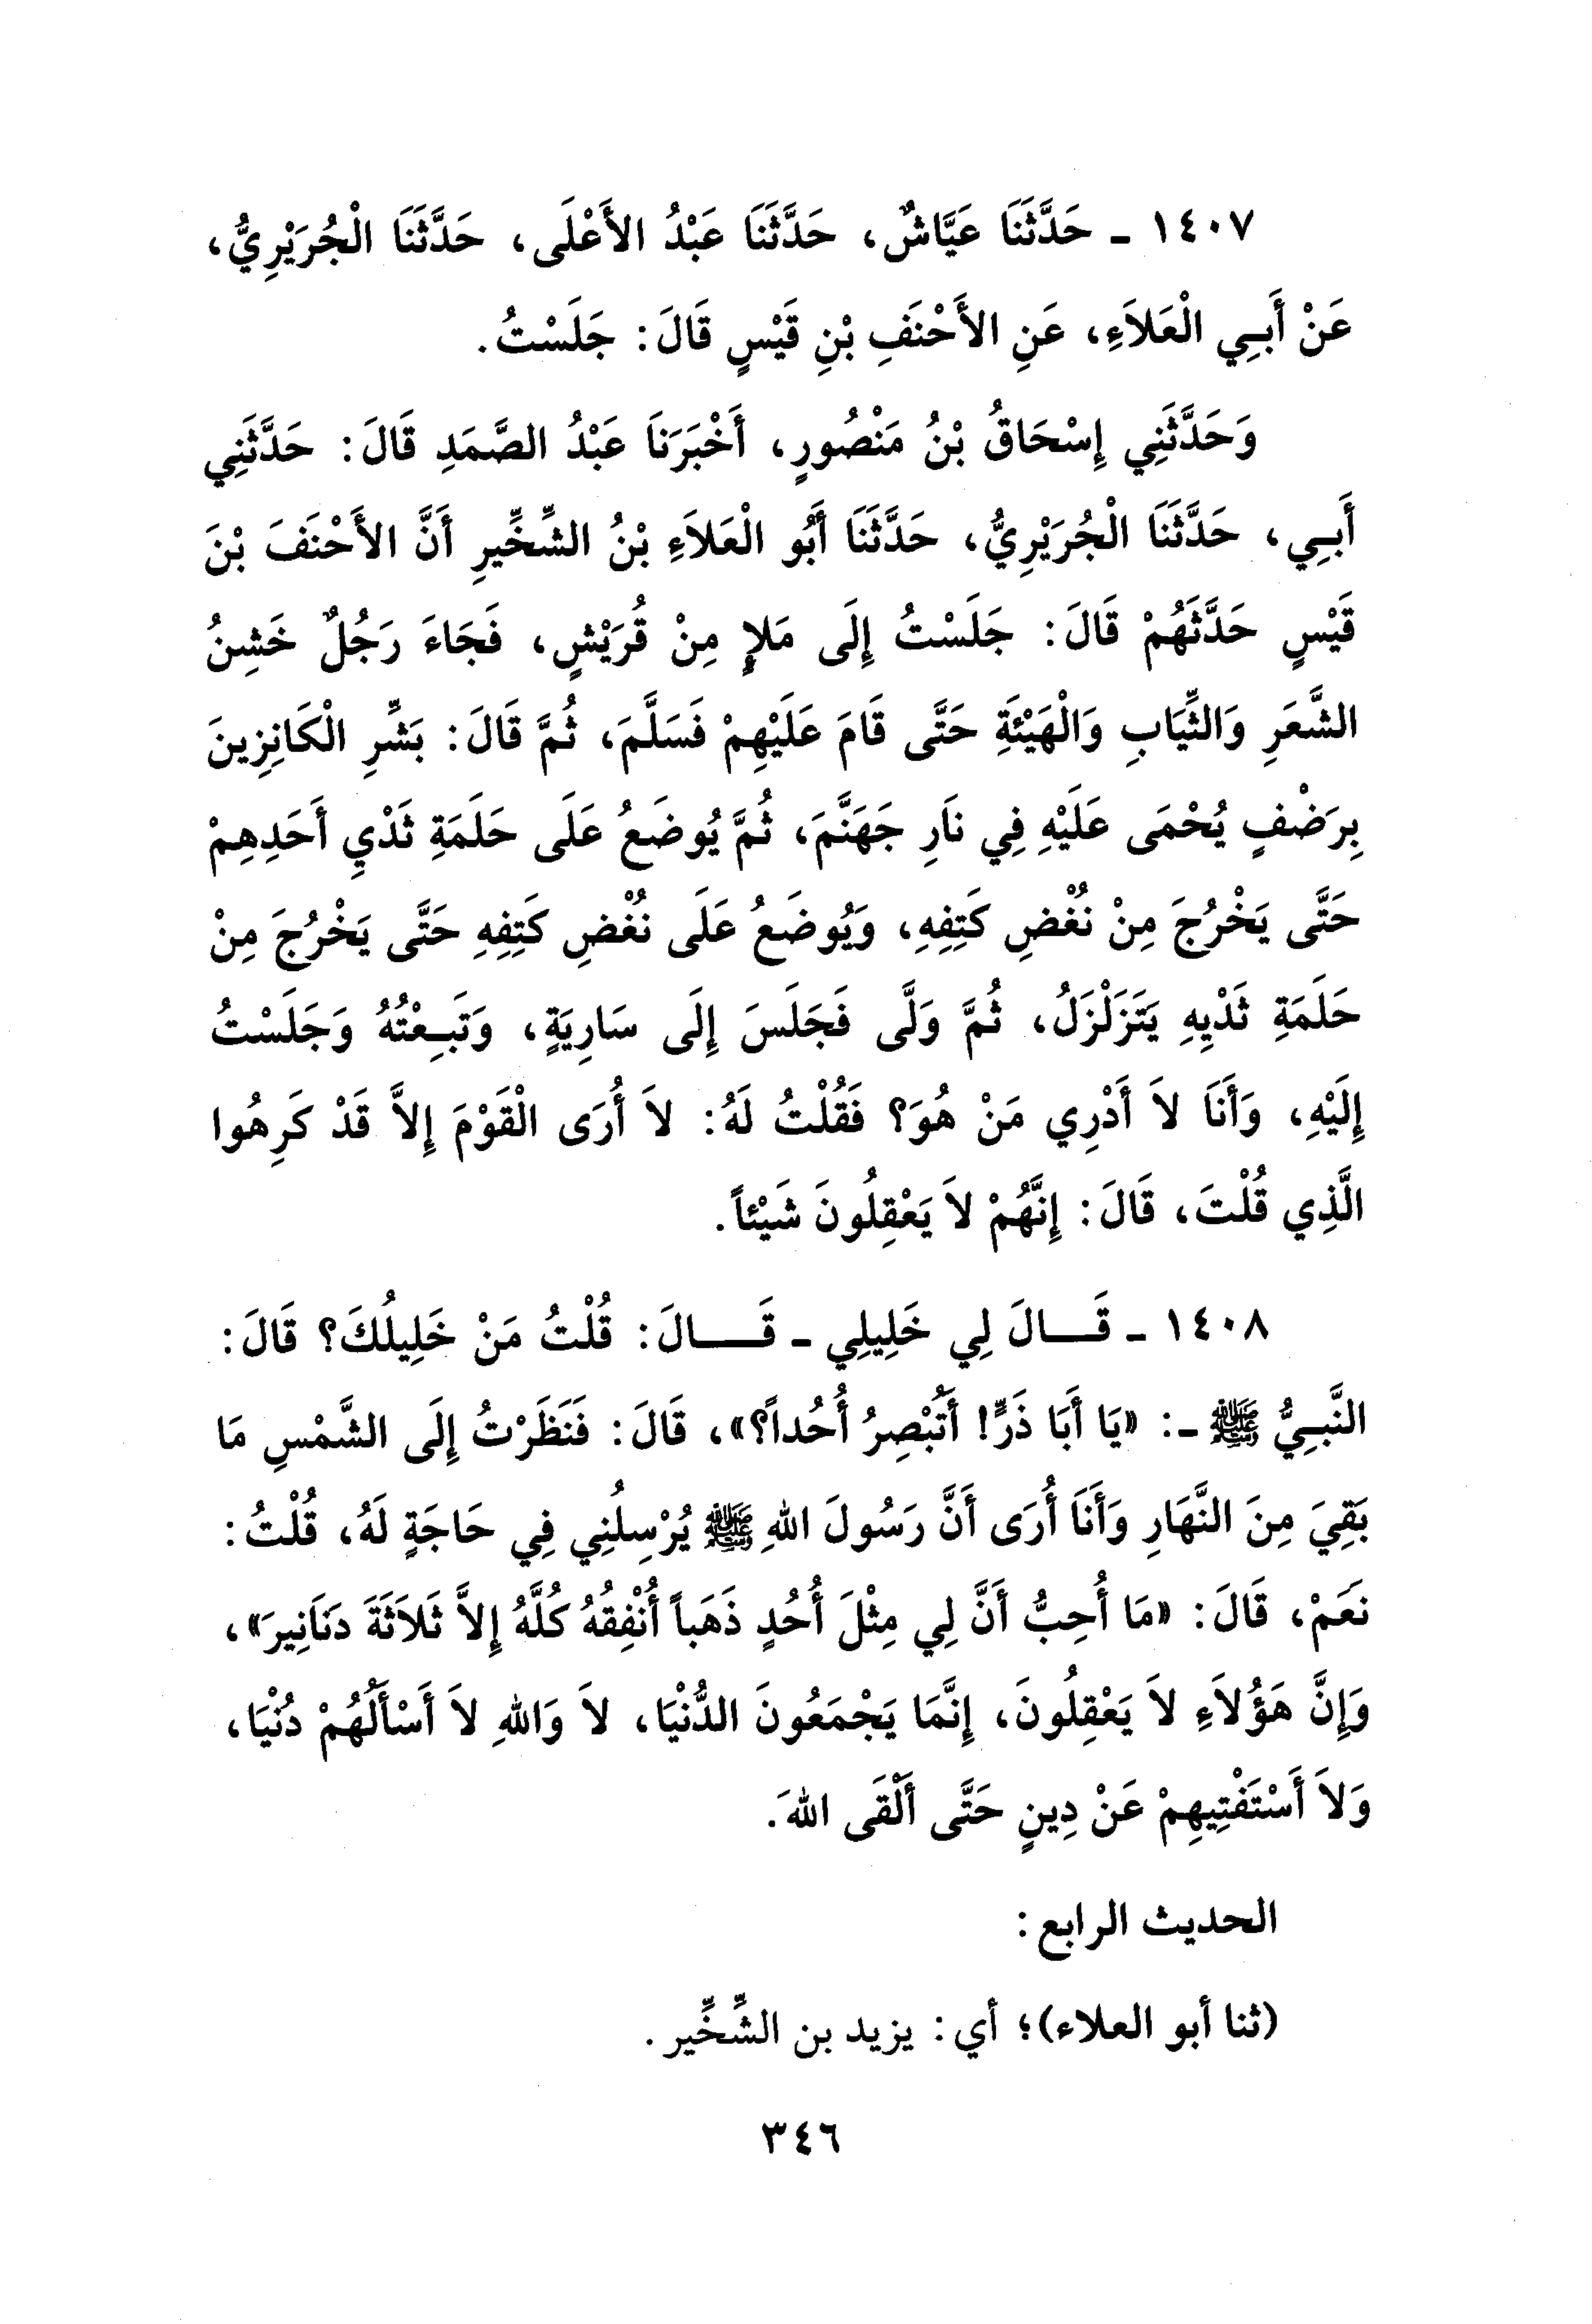 ١٤٠٧ - حَدَّثَنَا عَيَّاشٌ، حَدَّثَنَا عَبْدُ الأَعْلَى، حَدَّثَنَا الْجُرَيْرِيُّ،
عَنْ أَبِي الْعَلاَءِ، عَنِ الأَحْنَفِ بْنِ قَيْسٍ قَالَ: جَلَسْتُ.
وَحَدَّثَنِي إِسْحَاقُ بْنُ مَنْصُورٍ، أَخْبَرَنَا عَبْدُ الصَّمَدِ قَالَ: حَدَّثَنِي
أَبِي، حَدَّثَنَا الْجُرَيْرِيُّ، حَدَّثَنَا أَبُو الْعَلاَءِ بْنُ الشِّخِّيرِ أَنَّ الأَحْنَفَ بْنَ
قَيْسٍ حَدَّثَهُمْ قَالَ: جَلَسْتُ إِلَى مَلإٍ مِنْ قُرَيْشٍ، فَجَاءَ رَجُلٌ خَشِنُ
الشَّعَرِ وَالثِّيَابِ وَالْهَيْئَةِ حَتَّى قَامَ عَلَيْهِمْ فَسَلَّمَ، ثُمَّ قَالَ: بَشِّرِ الْكَانِزِينَ
بِرَضْفٍ يُحْمَى عَلَيْهِ فِي نَارِ جَهَنَّمَ، ثُمَّ يُوضَعُ عَلَى حَلَمَةِ ثَدْيِ أَحَدِهِمْ
حَتَّى يَخْرُجَ مِنْ نُغْضِ كَتِفِهِ، وَيُوضَعُ عَلَى نُغْضِ كَتِفِهِ حَتَّى يَخْرُجَ مِنْ
حَلَمَةِ ثَدْيِهِ يَتَزَلْزَلُ، ثُمَّ وَلَّى فَجَلَسَ إِلَى سَارِيَةٍ، وَتَبِعْتُهُ وَجَلَسْتُ
إِلَيْهِ، وَأَنَا لاَ أَدْرِي مَنْ هُوَ؟ فَقُلْتُ لَهُ: لاَ أُرَى الْقَوْمَ إِلاَّ قَدْ كَرِهُوا
الَّذِي قُلْتَ، قَالَ: إِنَّهُمْ لاَ يَعْقِلُونَ شَيْئاً.
١٤٠٨ - قَالَ لِي خَلِيلِي - قَالَ: قُلْتُ مَنْ خَلِيلُكَ؟ قَالَ:
النَّبِيُّ ﷺ -: «يَا أَبَا ذَرٍّ! أَتُبْصِرُ أُحُداً؟»، قَالَ: فَنَظَرْتُ إِلَى الشَّمْسِ مَا
بَقِيَ مِنَ النَّهَارِ وَأَنَا أُرَى أَنَّ رَسُولَ اللهِ ﷺ يُرْسِلُنِي فِي حَاجَةٍ لَهُ، قُلْتُ:
نَعَمْ، قَالَ: «مَا أُحِبُّ أَنَّ لِي مِثْلَ أُحُدٍ ذَهَباً أُنْفِقُهُ كُلَّهُ إِلاَّ ثَلاَثَةَ دَنَانِيرَ»،
وَإِنَّ هَؤُلاَءِ لاَ يَعْقِلُونَ، إِنَّمَا يَجْمَعُونَ الدُّنْيَا، لاَ وَاللهِ لاَ أَسْأَلُهُمْ دُنْيَا،
وَلاَ أَسْتَفْتِيهِمْ عَنْ دِينٍ حَتَّى أَلْقَى اللهَ.
الحديث الرابع:
(ثنا أبو العلاء)؛ أي: يزيد بن الشِّخِّير.
٣٤٦